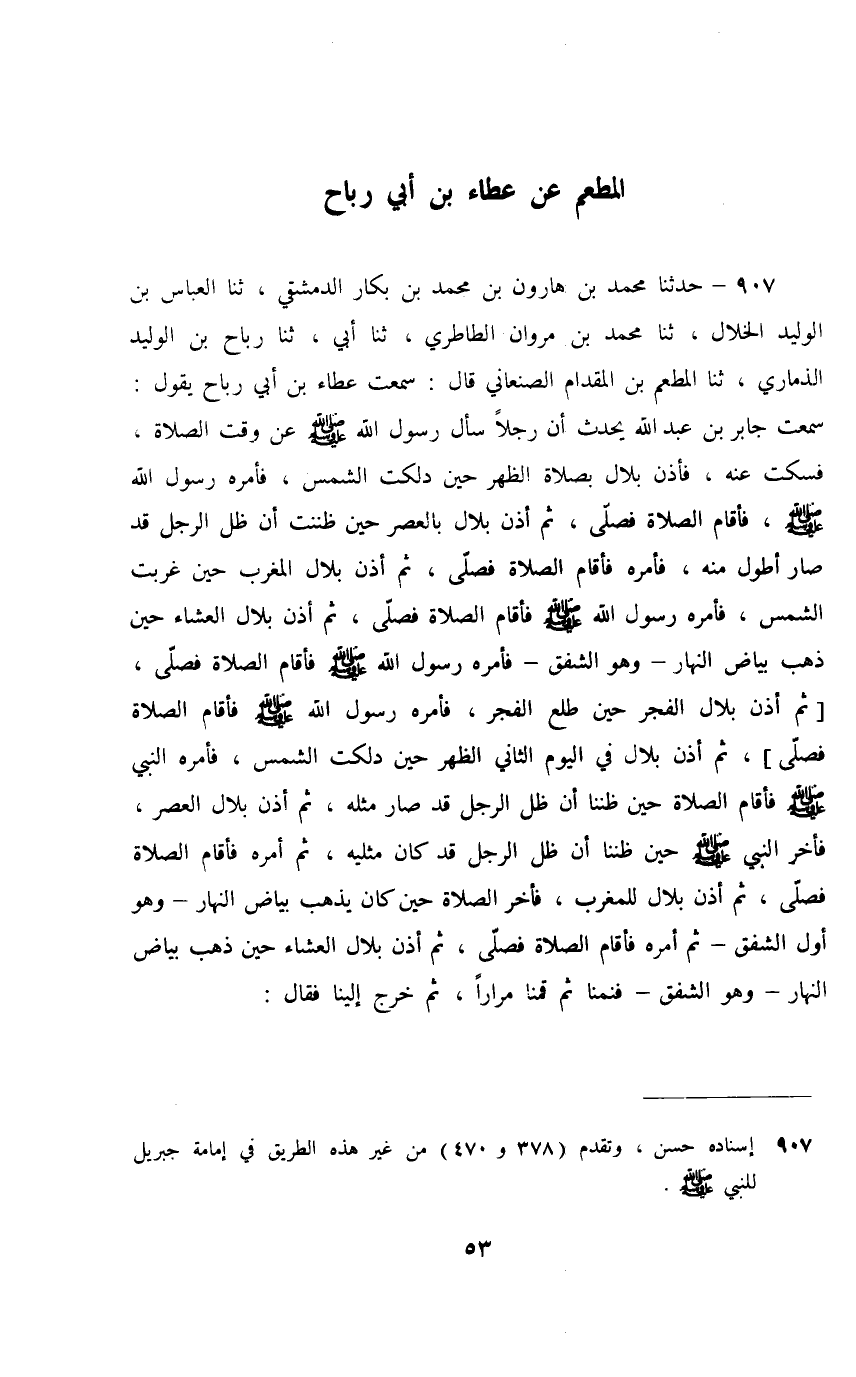 المطعم عن عطاء بن أبي رباح
٩٠٧ – حدثنا محمد بن هارون بن محمد بن بكار الدمشقي ، ثنا العباس بن
الوليد الخلال ، ثنا محمد بن مروان الطاطري ، ثنا أبي ، ثنا رباح بن الوليد
الذماري ، ثنا المطعم بن المقدام الصنعاني قال : سمعت عطاء بن أبي رباح يقول :
سمعت جابر بن عبد الله يحدث أن رجلاً سأل رسول الله ﷺ عن وقت الصلاة ،
فسكت عنه ، فأذن بلال بصلاة الظهر حين دلكت الشمس ، فأمره رسول الله
ﷺ ، فأقام الصلاة فصلّى ، ثم أذن بلال بالعصر حين ظننت أن ظل الرجل قد
صار أطول منه ، فأمره فأقام الصلاة فصلّى ، ثم أذن بلال المغرب حين غربت
الشمس ، فأمره رسول الله ﷺ فأقام الصلاة فصلّى ، ثم أذن بلال العشاء حين
ذهب بياض النهار – وهو الشفق – فأمره رسول الله ﷺ فأقام الصلاة فصلّى ،
[ ثم أذن بلال الفجر حين طلع الفجر ، فأمره رسول الله ﷺ فأقام الصلاة
فصلّى ] ، ثم أذن بلال في اليوم الثاني الظهر حين دلكت الشمس ، فأمره النبي
ﷺ فأقام الصلاة حين ظننا أن ظل الرجل قد صار مثله ، ثم أذن بلال العصر ،
فأخر النبي ﷺ حين ظننا أن ظل الرجل قد كان مثليه ، ثم أمره فأقام الصلاة
فصلّى ، ثم أذن بلال للمغرب ، فأخر الصلاة حين كان يذهب بياض النهار – وهو
أول الشفق – ثم أمره فأقام الصلاة فصلّى ، ثم أذن بلال العشاء حين ذهب بياض
النهار – وهو الشفق – فنمنا ثم قمنا مراراً ، ثم خرج إلينا فقال :
٩٠٧ إسناده حسن ، وتقدم ( ٣٧٨ و ٤٧٠ ) من غير هذه الطريق في إمامة جبريل
للنبي ﷺ .
٥٣